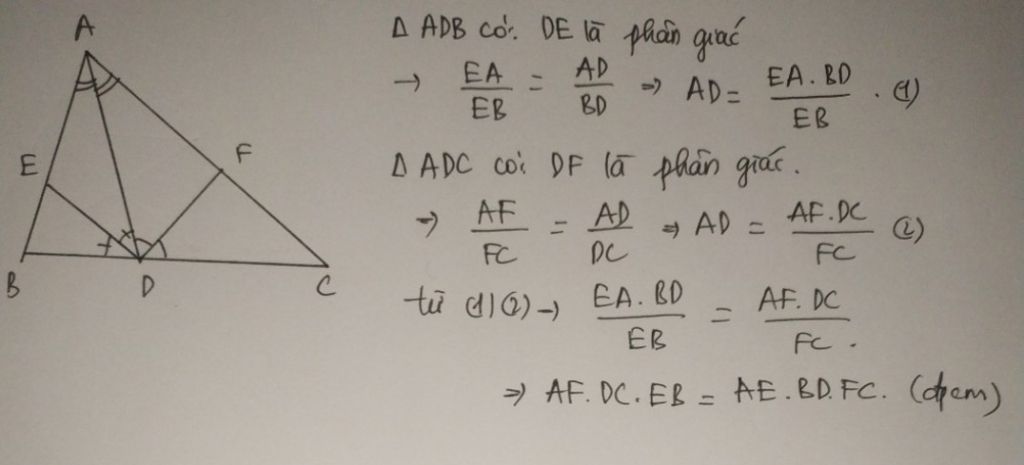 A
E
F
B
D
C
Δ ADB có: DE là phân giác
→ EA/EB = AD/BD => AD = EA.BD/EB . (1)
Δ ADC có: DF là phân giác.
→ AF/FC = AD/DC => AD = AF.DC/FC (2)
từ (1)(2) → EA.BD/EB = AF.DC/FC .
=> AF.DC.EB = AE.BD.FC. (đpcm)